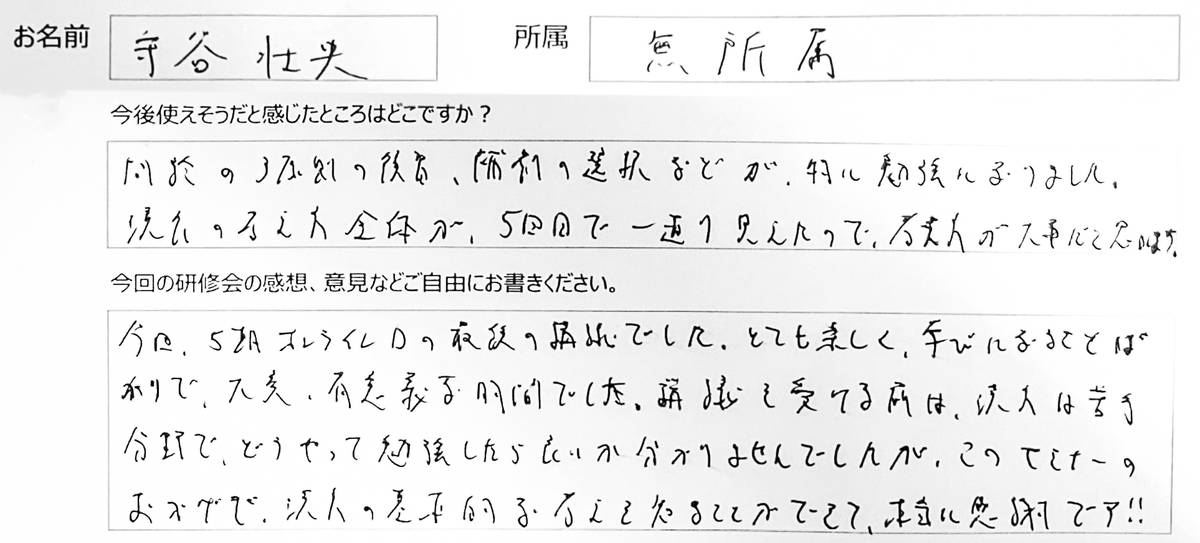 お名前 守谷 壮央 所属 無所属
今後使えそうだと感じたところはどこですか?
問診の3原則の復習、補剤の選択などが、特に勉強になりました。
漢方の考え方全体が、5回目で一通り見えたので、が大事だと思います。
今回の研修会の感想、意見などご自由にお書きください。
今回、5期オンラインの最後の講義でした。とても楽しく、学びになることば
かりで、大変、有意義な時間でした。講義を受ける前は、漢方は苦手
分野で、どうやって勉強したら良いか分かりませんでしたが、このセミナーの
おかげで、漢方の基本的な考えを知ることができて、本当に感謝です!!